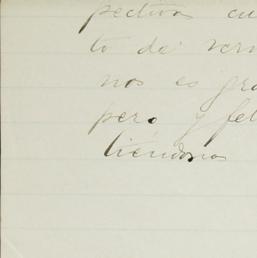 pectivos cu
to de ver
nos es gra
pero y fel
tiéndonos